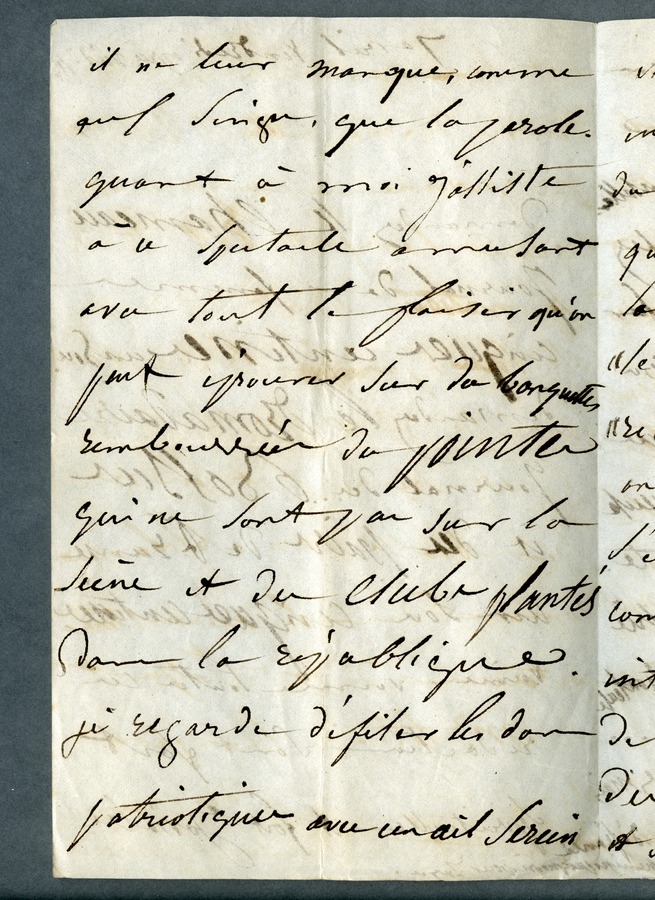 il ne leur manque, comme
au singe, que la parole.
quant à moi j'assiste
à ce spectacle amusant
avec tout le plaisir qu'on
peut éprouver sur des banquettes
rembourrées de pointes
qui ne sont pas sur la
scène et des clubs plantés
dans la république.
je regarde défiler les dons
patriotiques avec un œil serein